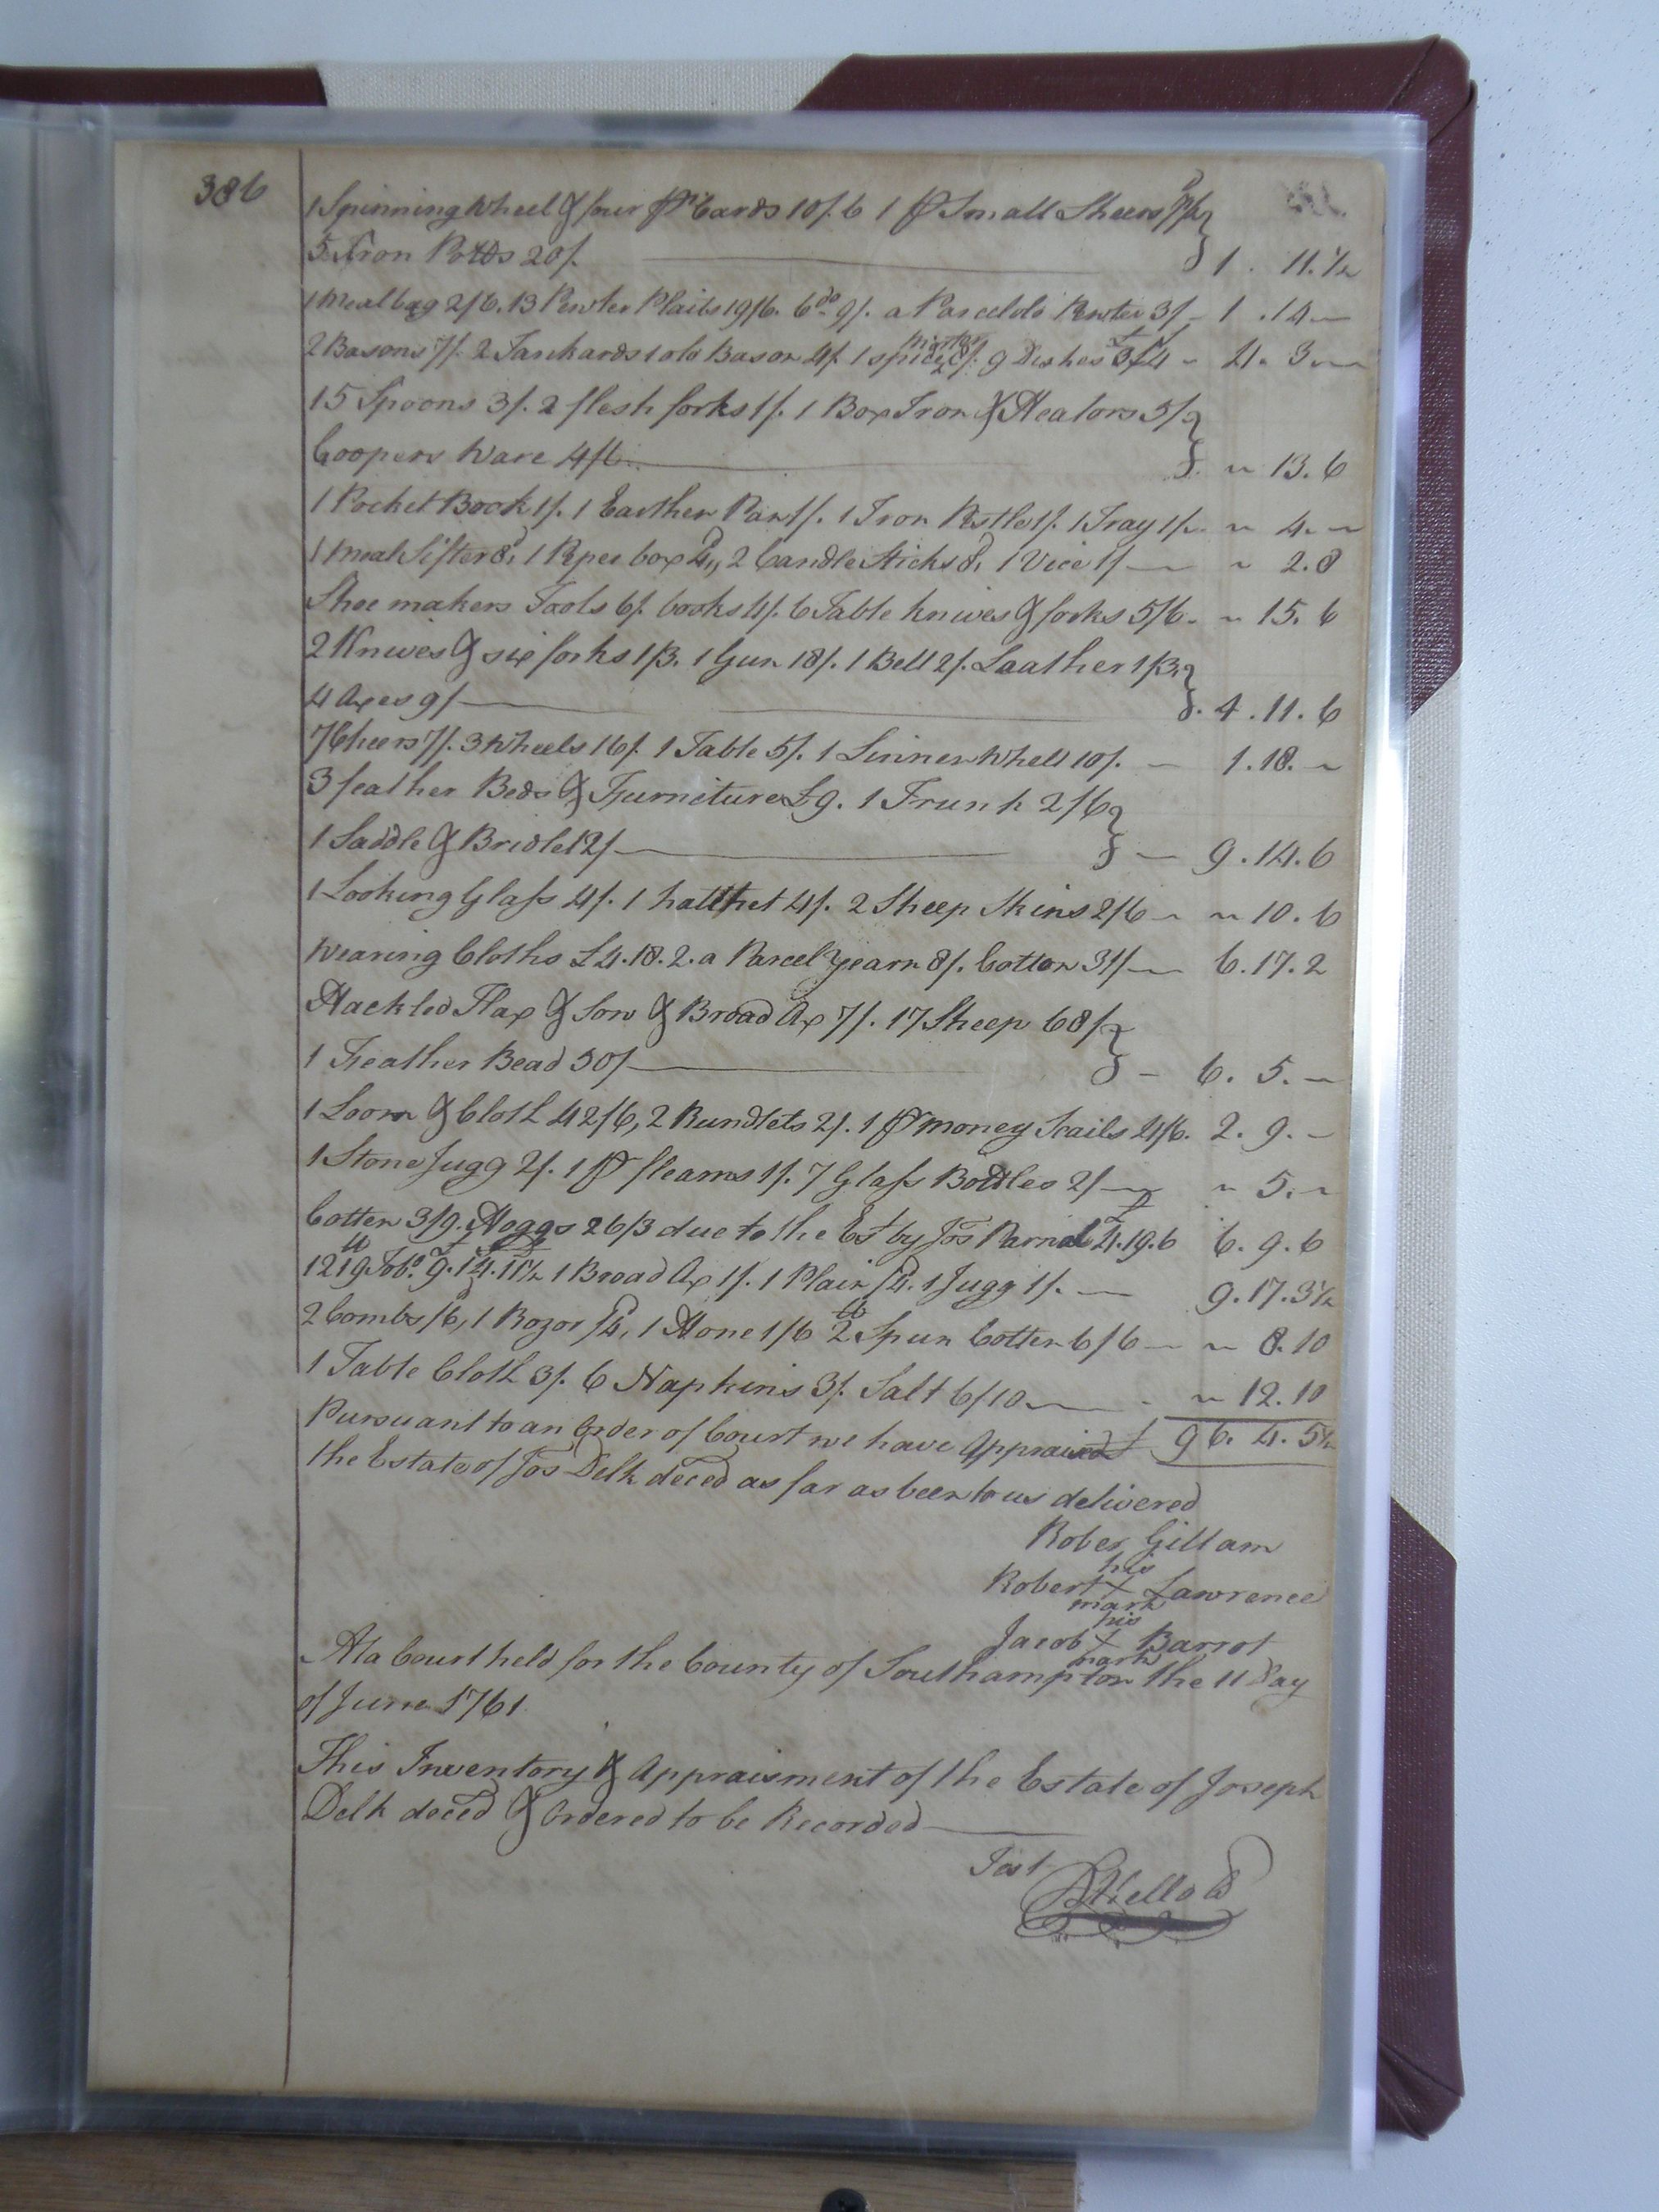 386
1 Spinning Wheel & four pr Cards 10/.6 1 pr Small Sheers
5 Iron Potts 20/. 1 . 11.½
1 Meal bag 2/6. 13 Pewter Plaits 19/6. 6 do 9/. a Parcel olo Pewter 3/ 1 .14
2 Basons 7/. 2 Tankards 1 olo Bason 4/. 1 spice mortar 9 Dishes 4. 3.
15 Spoons 3/. 2 flesh forks 1/. 1 Box Iron & Heators 5/
Coopers Ware 4/6 13.6
1 Pocket Book 1/. 1 Earthen Pan 1/. 1 Iron Pestle 1/. 1 Tray 1/. 4.
1 Meal Sifter 8d, 1 Peper box 4d, 2 Candle Sticks 8d, 1 Vice 1/ 2.8
Shoe makers Tools 6/. books 4/. 6 Table knives & forks 5/6. 15.6
2 Knives & six forks 1/3. 1 Gun 18/. 1 Bell 2/. Leather 1/3
4 Axes 9/ 4.11.6
7 Cheers 7/. 3 Wheels 16/. 1 Table 5/. 1 Linnen Whell 10/. 1.18.
3 feather Beds & Furniture £9. 1 Trunk 2/6
1 Saddle & Bridle 12/ 9.14.6
1 Looking Glass 4/. 1 hatthet 4/. 2 Sheep Skins 2/6 10.6
Wearing Cloths £4.18.2. a Parcel Yearn 8/. Cotton 31/ 6.17.2
Hackled Flax & Tow & Broad Ax 7/. 17 Sheep 68/
1 Feather Bead 50/ 6. 5.
1 Loom & Cloth 42/6, 2 Rundlets 2/. 1 pr money Scails 4/6. 2. 9.
1 Stone Jugg 2/. 1 pr fleams 1/. 7 Glass Bottles 2/ 5.
Cotten 3/9. Hoggs 26/3 due to the Est by Jos Parnal £4.19.6 6.9.6
1219 lb Tobo £9.14.11½ 1 Broad Ax 1/. 1 Plain /4d. 1 Jugg 1/. 9.17.3½
2 Combs /6d, 1 Rozor /4d, 1 Hone 1/6 2 lb Spun Cotten 6/6 8.10
1 Table Cloth 3/. 6 Napkins 3/. Salt 6/10 12.10
Pursuant to an Order of Court we have Appraised 96.4.5½
the Estate of Jos Delk deced as far as been to us delivered
Rober Gillam
his
Robert X Lawrence
mark
his
Jacob X Barrot
mark
At a Court held for the County of Southampton the 11 Day
of June 1761
This Inventory & Appraisment of the Estate of Joseph
Delk deced & Ordered to be Recorded
Test